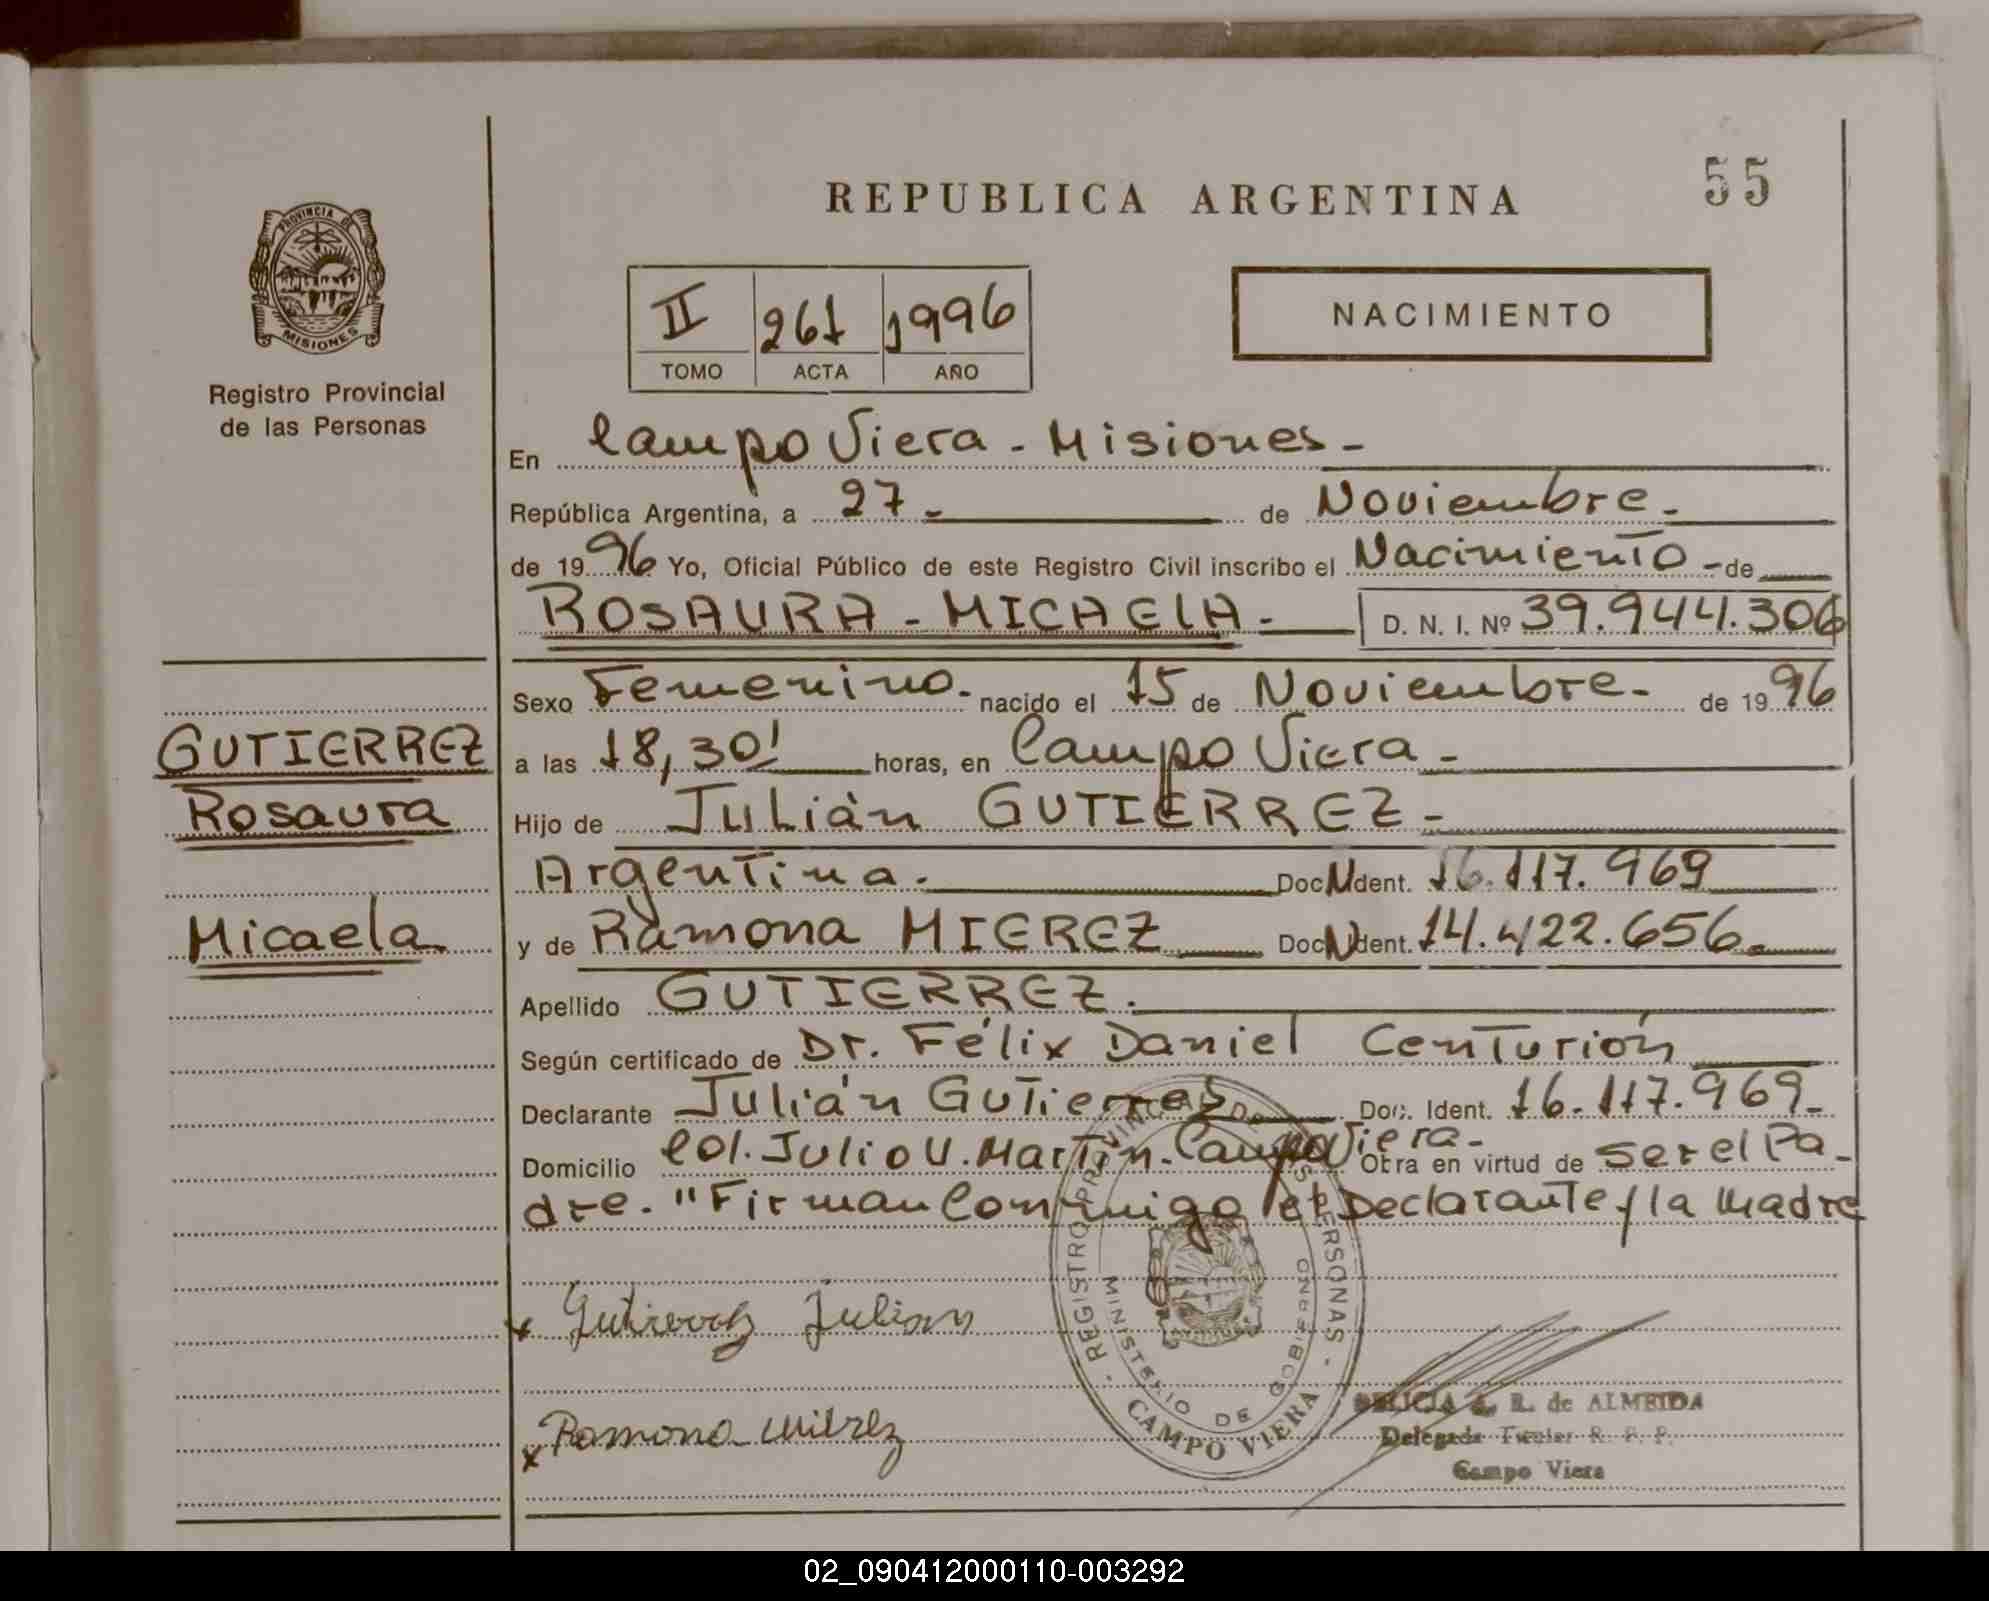 55
REPUBLICA ARGENTINA
PROVINCIA DE
MISIONES
Registro Provincial
de las Personas
II 261 1996
TOMO ACTA AÑO
NACIMIENTO
En Campo Viera - Misiones -
República Argentina, a 27 - de Noviembre -
de 1996 Yo, Oficial Público de este Registro Civil inscribo el Nacimiento - de
ROSAURA - MICAELA - D. N. I. Nº 39.944.306
Sexo Femenino - nacido el 15 de Noviembre - de 1996
a las 18,30' horas, en Campo Viera -
Hijo de Julián GUTIERREZ -
Argentina - Doc N Ident. 16.117.969
y de Ramona MIEREZ Doc N Ident. 14.422.656 -
Apellido GUTIERREZ -
Según certificado de Dr. Félix Daniel Centurión
Declarante Julián Gutierrez Doc. Ident. 16.117.969 -
Domicilio Col. Julio U. Martin - Campo Viera - Obra en virtud de ser el Pa-
dre. "Firman Conmigo el Declarante y la Madre
GUTIERREZ
Rosaura
Micaela
x Gutierrez Julian
x Ramona Mierez
REGISTRO PROVINCIAL DE LAS PERSONAS
MINISTERIO DE GOBIERNO
CAMPO VIERA
R. de ALMEIDA
Delegada Titular R. P. P.
Campo Viera
02_090412000110-003292